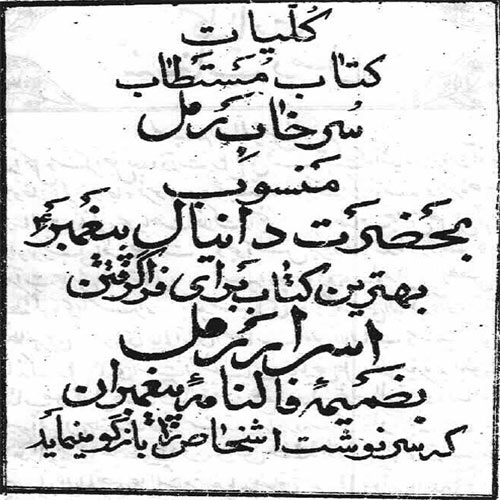 کُلّیات
کتاب مُستَطاب
سُرخاب رَمل
مَنسوب
بحَضرَت دانیال پیغَمبَرؑ
بهترین کتاب بَرای فراگرفتن
اسرار رَمل
بضَمیمهٔ فالنامهٔ پیغمبران
که سرنوشت اشخاص را بازگو مینماید